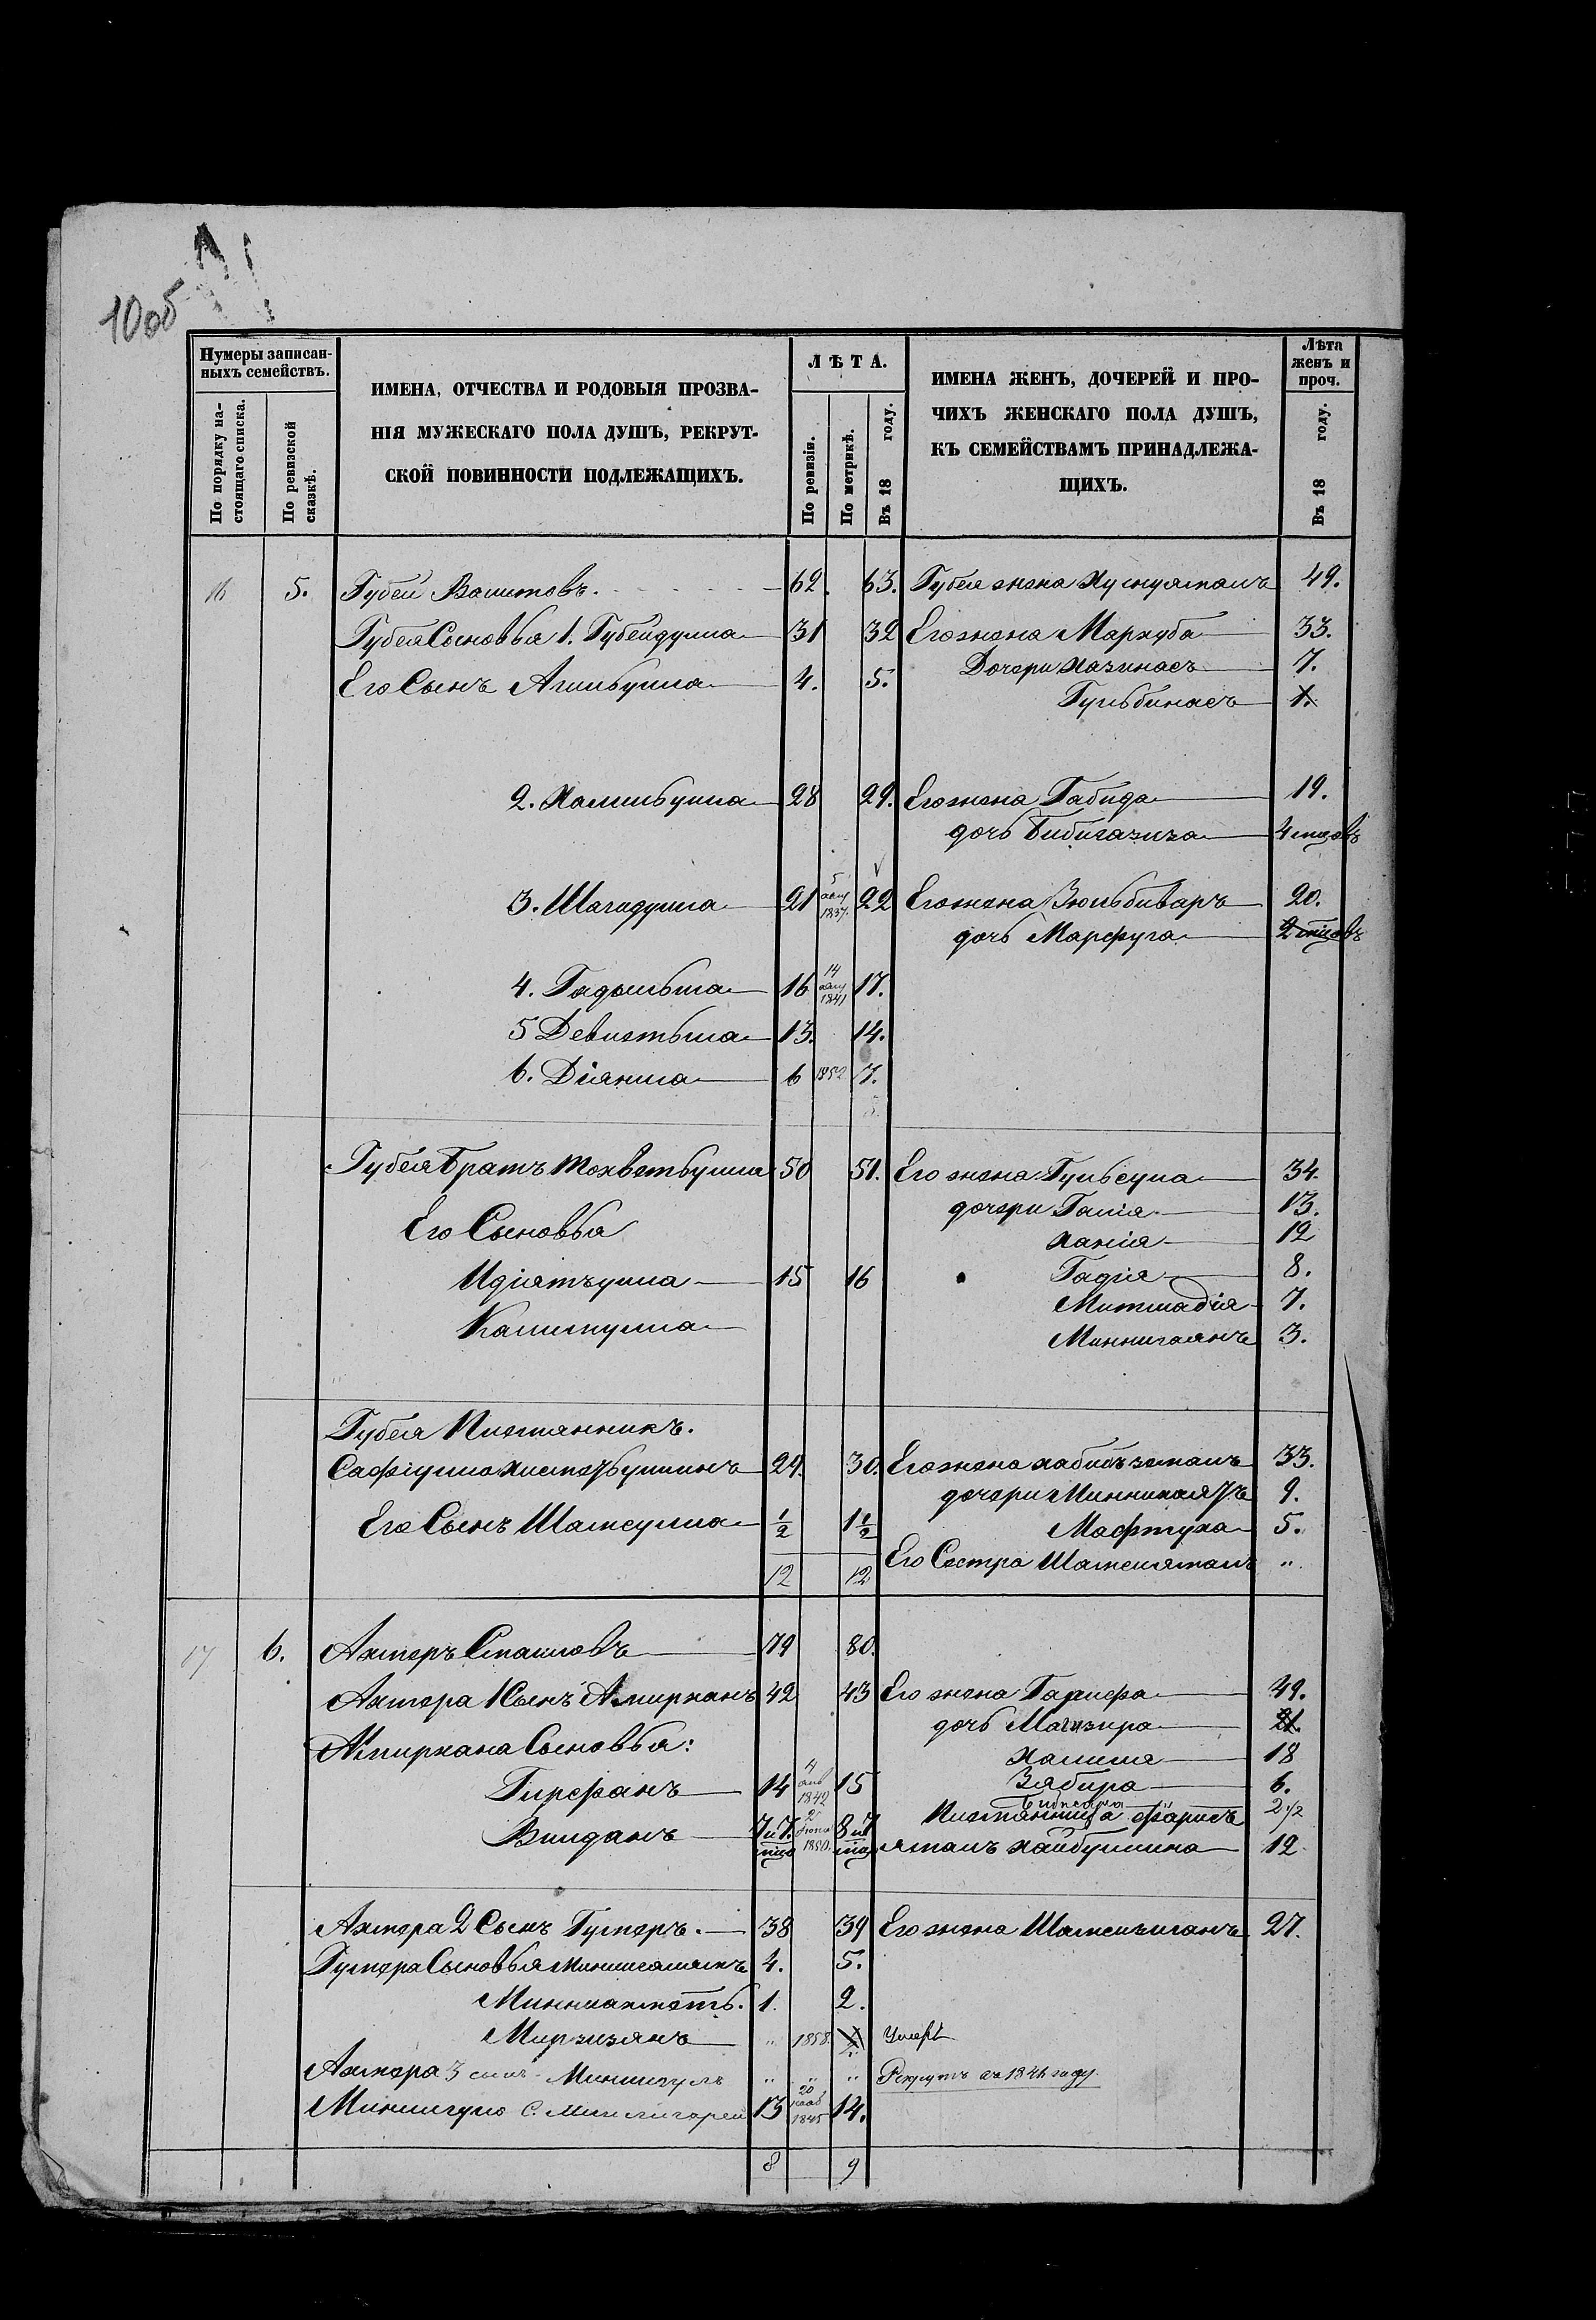 10об
Нумеры записан-
ныхъ семействъ.
По порядку на-
стоящаго списка.
По ревизской
сказкѣ.
ИМЕНА, ОТЧЕСТВА И РОДОВЫЯ ПРОЗВА-
НІЯ МУЖЕСКАГО ПОЛА ДУШЪ, РЕКРУТ-
СКОЙ ПОВИННОСТИ ПОДЛЕЖАЩИХЪ.
ЛѢТА.
По ревизіи.
По метрикѣ.
Въ 18 году.
ИМЕНА ЖЕНЪ, ДОЧЕРЕЙ И ПРО-
ЧИХЪ ЖЕНСКАГО ПОЛА ДУШЪ,
КЪ СЕМЕЙСТВАМЪ ПРИНАДЛЕЖА-
ЩИХЪ.
Лѣта
женъ и
проч.
Въ 18 году.
16 5. Губей Вашитовъ. 62. 63. Губея жена Хуснуямалъ 49.
Губея Сыновья 1. Губейдулла 31 32 Его жена Мархуба 33.
Его Сынъ Агильулла 4. 5. ДочериНазинасъ 7.
Гульбинасъ 1.
2. Халильулла 28 29. Его жена Габида 19.
дочь Бибигазиза 4 мцовъ
3. Шагидулла 21 5 1837. 22 Его жена Зюльбиваръ 20.
дочь Марфуга 2 мцовъ
4. Гадыльша 16 14 1841 17.
5 Девлетьша 13. 14.
6. Діянша 6 1852 7.
Губея братъ Мохветьулла 50 51. Его жена Гульсула 34.
дочери Галія 13.
Его Сыновья Ханія 12
Идіятъулла 15 16 Гадія 8.
7.
Калимулла Миннигаянъ 3.
Губея Племянникъ.
Сафіулла 29. 30. Его жена хабибъземалъ 33.
дочери 9.
Его Сынъ Шамсулла 1/2 1 1/2 Мафтуха 5.
12 12 Его Сестра Шамсиямалъ "
17 6. Ахтеръ Смаиловъ 79 80.
Ахтера 1 Сынъ Амирханъ 42 43 Его жена Гарифа 49.
дочь Магизира 21.
Амирхана Сыновья: Халиша 18
Гирфанъ 14 4 1842 15 Зябира 6.
Бибисара 2 1/2
Вилданъ 7 и 7. 2 1850. 8 и 7 Племянница Фарисъ
ямалъ Хайбуллина 12
Ахтера 2 Сынъ Гумеръ. 38 39 Его жена Шамсиъиганъ 27.
Гумера Сыновья 4. 5.
Минниахметъ. 1. 2.
Мирзизянъ " 1858. Умеръ
Ахтера 3 сынъ Миннигулъ " " " Рекрутъ въ 1846 году.
Миннигула С. Миннигарей 13 20 1845 14.
8 9